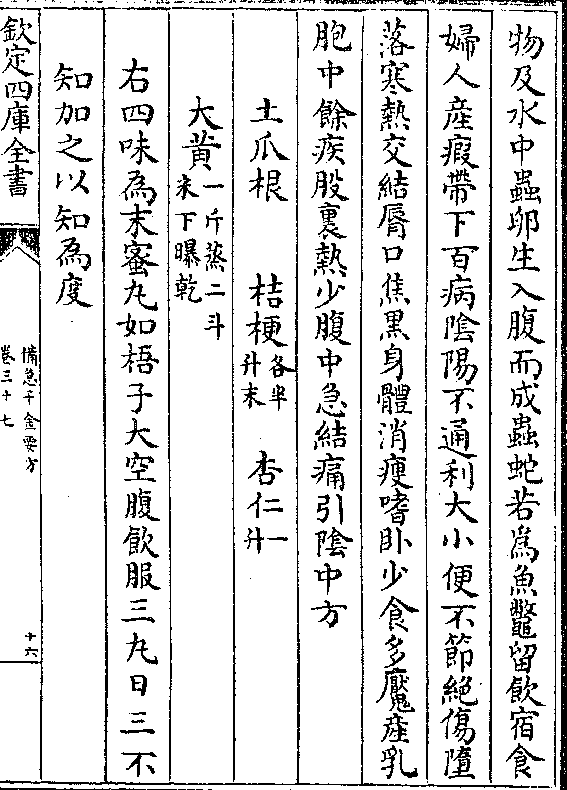 物及水中蟲卵生入腹而成蟲蛇若為魚鼈留飲宿食
婦人産瘕帶下百病陰陽不通利大小便不節絶傷墮
落寒熱交結脣口焦黒身體消瘦嗜卧少食多魘産乳
胞中餘疾股裏熱少腹中急結痛引陰中方
土爪根　桔梗各半升末　杏仁一升
大黄一斤蒸二斗米下曝乾
右四味為末蜜丸如梧子大空腹飲服三丸日三不
知加之以知為度
欽定四庫全書
備急千金要方
卷三十七
十六